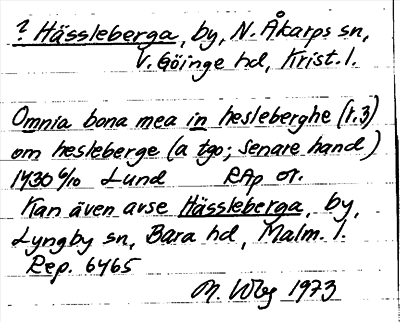 ? Hässleberga, by, N. Åkarps sn,
V. Göinge hd, Krist. l.
Omnia bona mea in hesleberghe (r. 3)
om hesleberge (a tgo; senare hand)
1430 6/10 Lund RAp or.
Kan även avse Hässleberga, by,
Lyngby sn, Bara hd, Malm. l.
Rep. 6465
M. Wbg 1973